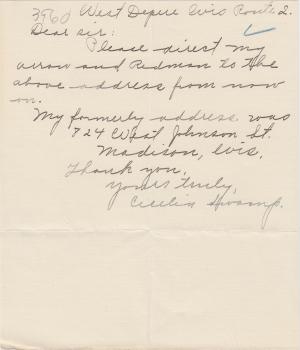 3960 West Depere Wis Route 2.
Dear sir:
Please direct my
arrow and Redman to the
above address from now
on.
My formerly address was
724 West Johnson St.
Madison, Wis.
Thank you,
Yours truly,
Cecelia Swamp.